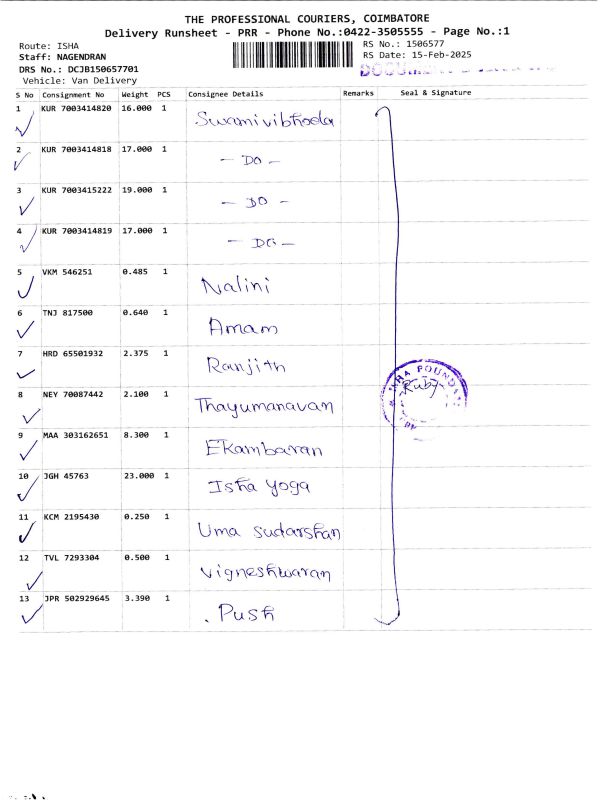 THE PROFESSIONAL COURIERS, COIMBATORE
Delivery Runsheet - PRR - Phone No.:0422-3505555 - Page No.:1
Route: ISHA
Staff: NAGENDRAN
DRS No.: DCJB150657701
Vehicle: Van Delivery
RS No.: 1506577
RS Date: 15-Feb-2025
S No Consignment No Weight PCS Consignee Details Remarks Seal & Signature
1 KUR 7003414820 16.000 1 Swamivibhoda
2 KUR 7003414818 17.000 1 - DO -
3 KUR 7003415222 19.000 1 - DO -
4 KUR 7003414819 17.000 1 - DO -
5 VKM 546251 0.485 1 Nalini
6 TNJ 817500 0.640 1 Amam
7 HRD 65501932 2.375 1 Ranjith
8 NEY 70087442 2.100 1 Thayumanavan
9 MAA 303162651 8.300 1 Ekambaran
10 JGH 45763 23.000 1 Isha Yoga
11 KCM 2195430 0.250 1 Uma Sudarshan
12 TVL 7293304 0.500 1 Vigneshwaran
13 JPR 502929645 3.390 1 . Push